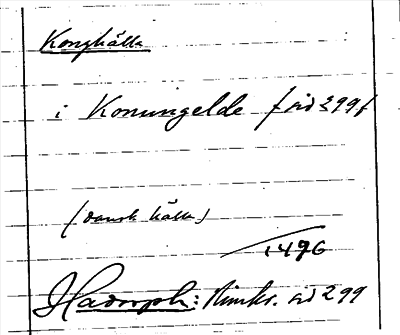 Konghälla
i Konungelde f sid 299 f
(dansk källa)
1496
Hadorph: Rimkr. sid 299